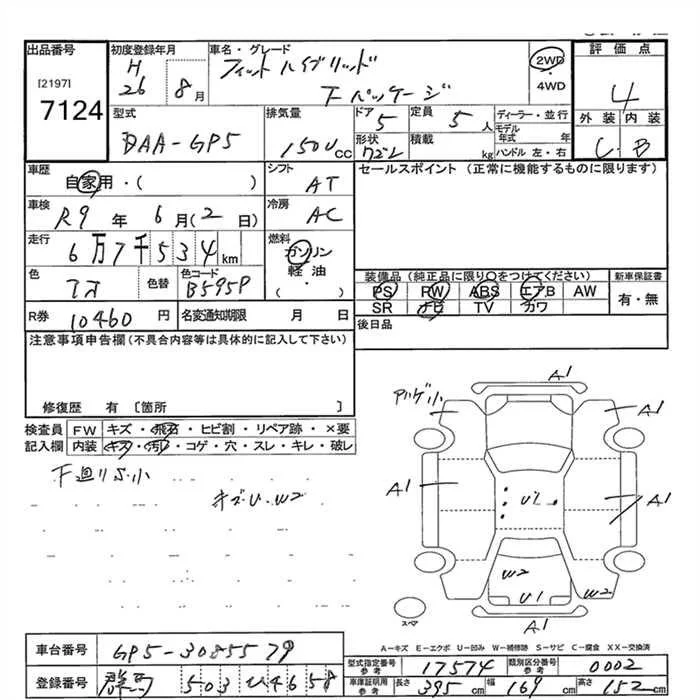 出品番号
[2197]
7124
初度登録年月
H
26 8月
車名・グレード
フィットハイブリッド
Fパッケージ
2WD
・
4WD
評価点
4
外装 内装
C B
型式
DAA-GP5
排気量
1500cc
ドア
5
形状
定員
5人
積載
kg
ディーラー・並行
モデル
年式 年
ハンドル 左・右
車歴
自家用・( )
シフト
AT
セールスポイント (正常に機能するものに限ります)
車検
R9年 6月(2日)
冷房
AC
走行
6万7千534km
燃料
ガソリン
軽油
( ・ )
色
アオ
色替
色コード
B595P
装備品 (純正品に限り○をつけてください)
PS PW ABS エアB AW
SR ナビ TV カワ
新車保証書
有・無
R券 10460円
名変通知期限 月 日
後日品
注意事項申告欄(不具合内容等は具体的に記入して下さい)
修復歴 有 〔箇所 〕
検査員 FW キズ・飛石・ヒビ割・リペア跡・×要
記入欄 内装 キズ・汚レ・コゲ・穴・スレ・キレ・破レ
下廻りS小
キズ・U・W2
A1
A1
A1
A1
U2
W2
U1
W2
A1
スペア
A-キズ E-エクボ U-凹み W-補修跡 S-サビ C-腐食 XX-交換済
車台番号 GP5-3085579
登録番号 群馬 503 ひ4658
型式指定番号
参考 17574
類別区分番号
参考 0002
車庫証明用
参考
長さ 395cm 幅 169cm 高さ 152cm